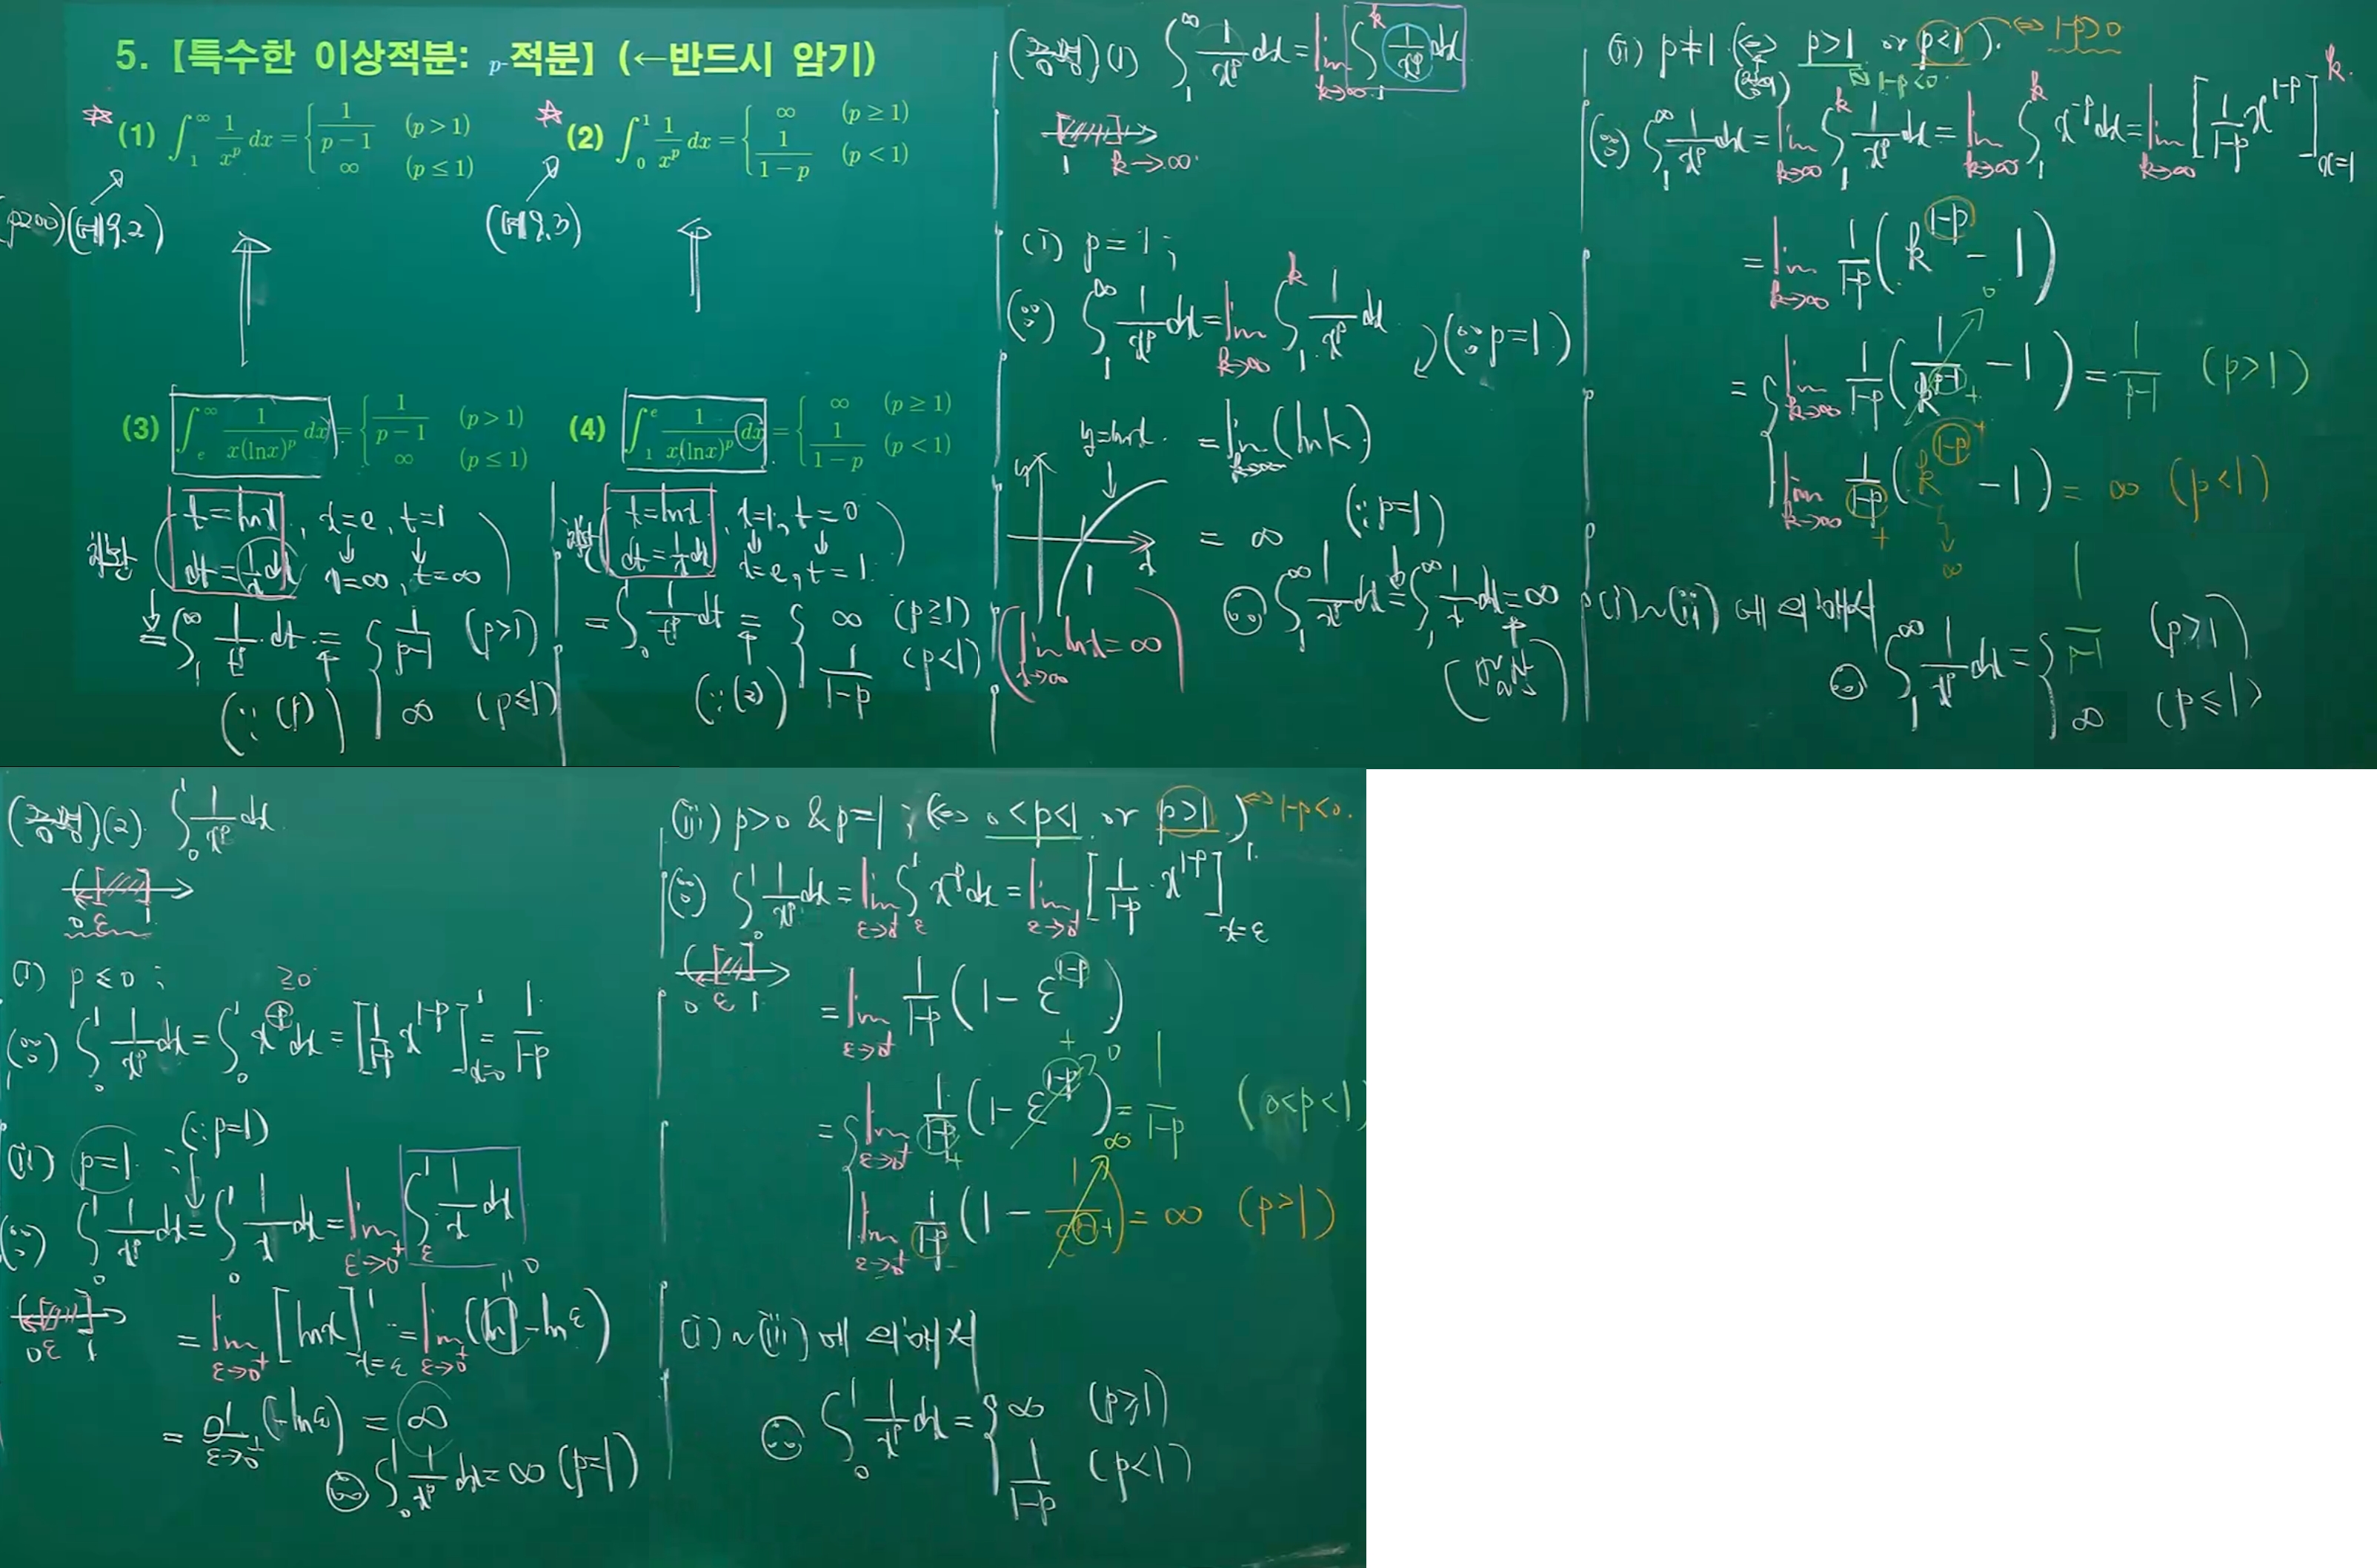 5. 【특수한 이상적분: p-적분】 (←반드시 암기)
☆ (1) ∫₁^∞ 1/x^p dx = { 1/(p-1) (p > 1), ∞ (p ≤ 1)
☆ (2) ∫₀^1 1/x^p dx = { ∞ (p ≥ 1), 1/(1-p) (p < 1)
(p200) (대유.2)
(대유.3)
(3) ∫_e^∞ 1/(x(lnx)^p) dx = { 1/(p-1) (p > 1), ∞ (p ≤ 1)
(4) ∫₁^e 1/(x(lnx)^p) dx = { ∞ (p ≥ 1), 1/(1-p) (p < 1)
치환 ( t=lnx, x=e, t=1
dt=1/x dx x=∞, t=∞ )
= ∫₁^∞ 1/t^p dt = { 1/(p-1) (p>1), ∞ (p≤1)
(∵(1))
치환 ( t=lnx, x=1, t=0
dt=1/x dx x=e, t=1 )
= ∫₀^1 1/t^p dt = { ∞ (p≥1), 1/(1-p) (p<1)
(∵(2))
(증명)(1) ∫₁^∞ 1/x^p dx = lim_{k→∞} ∫₁^k 1/x^p dx
1 k→∞
(i) p=1 ;
∫₁^∞ 1/x^p dx = lim_{k→∞} ∫₁^k 1/x^p dx
(∵p=1)
y=lnx = lim_{k→∞} (ln k)
y x 1
= ∞ (∵p=1)
( lim_{x→∞} lnx = ∞ )
∴ ∫₁^∞ 1/x^p dx = ∫₁^∞ 1/x dx = ∞
(발산)
(ii) p≠1 (⇔ p>1 or p<1). ⇔ 1-p>0
1-p<0
∫₁^∞ 1/x^p dx = lim_{k→∞} ∫₁^k 1/x^p dx = lim_{k→∞} ∫₁^k x^{-p} dx = lim_{k→∞} [1/(1-p) x^{1-p}]_{x=1}^k
= lim_{k→∞} 1/(1-p) (k^{1-p} - 1)
= { lim_{k→∞} 1/(1-p) (1/k^{p-1} - 1) = 1/(p-1) (p>1)
lim_{k→∞} 1/(1-p) (k^{1-p} - 1) = ∞ (p<1)
(i)~(ii)에 의해서
∴ ∫₁^∞ 1/x^p dx = { 1/(p-1) (p>1), ∞ (p≤1)
(증명)(2) ∫₀^1 1/x^p dx
0 ε 1
(i) p≤0 ; ≥0
∫₀^1 1/x^p dx = ∫₀^1 x^{-p} dx = [1/(1-p) x^{1-p}]_{x=0}^1 = 1/(1-p)
(ii) p=1 ; (∵p=1)
∫₀^1 1/x^p dx = ∫₀^1 1/x dx = lim_{ε→0⁺} ∫_ε^1 1/x dx
0 ε 1
= lim_{ε→0⁺} [lnx]_{x=ε}^1 = lim_{ε→0⁺} (ln1 - lnε)
= lim_{ε→0⁺} (-lnε) = ∞
∴ ∫₀^1 1/x^p dx = ∞ (p=1)
(iii) p>0 & p=1 ; (⇔ 0<p<1 or p>1) ⇔ 1-p<0.
∫₀^1 1/x^p dx = lim_{ε→0⁺} ∫_ε^1 x^{-p} dx = lim_{ε→0⁺} [1/(1-p) · x^{1-p}]_{x=ε}^1
0 ε 1
= lim_{ε→0⁺} 1/(1-p) (1 - ε^{1-p})
= { lim_{ε→0⁺} 1/(1-p) (1 - ε^{1-p}) = 1/(1-p) (0<p<1)
lim_{ε→0⁺} 1/(1-p) (1 - 1/ε^{p-1}) = ∞ (p>1)
(i)~(iii)에 의해서
∴ ∫₀^1 1/x^p dx = { ∞ (p≥1), 1/(1-p) (p<1)